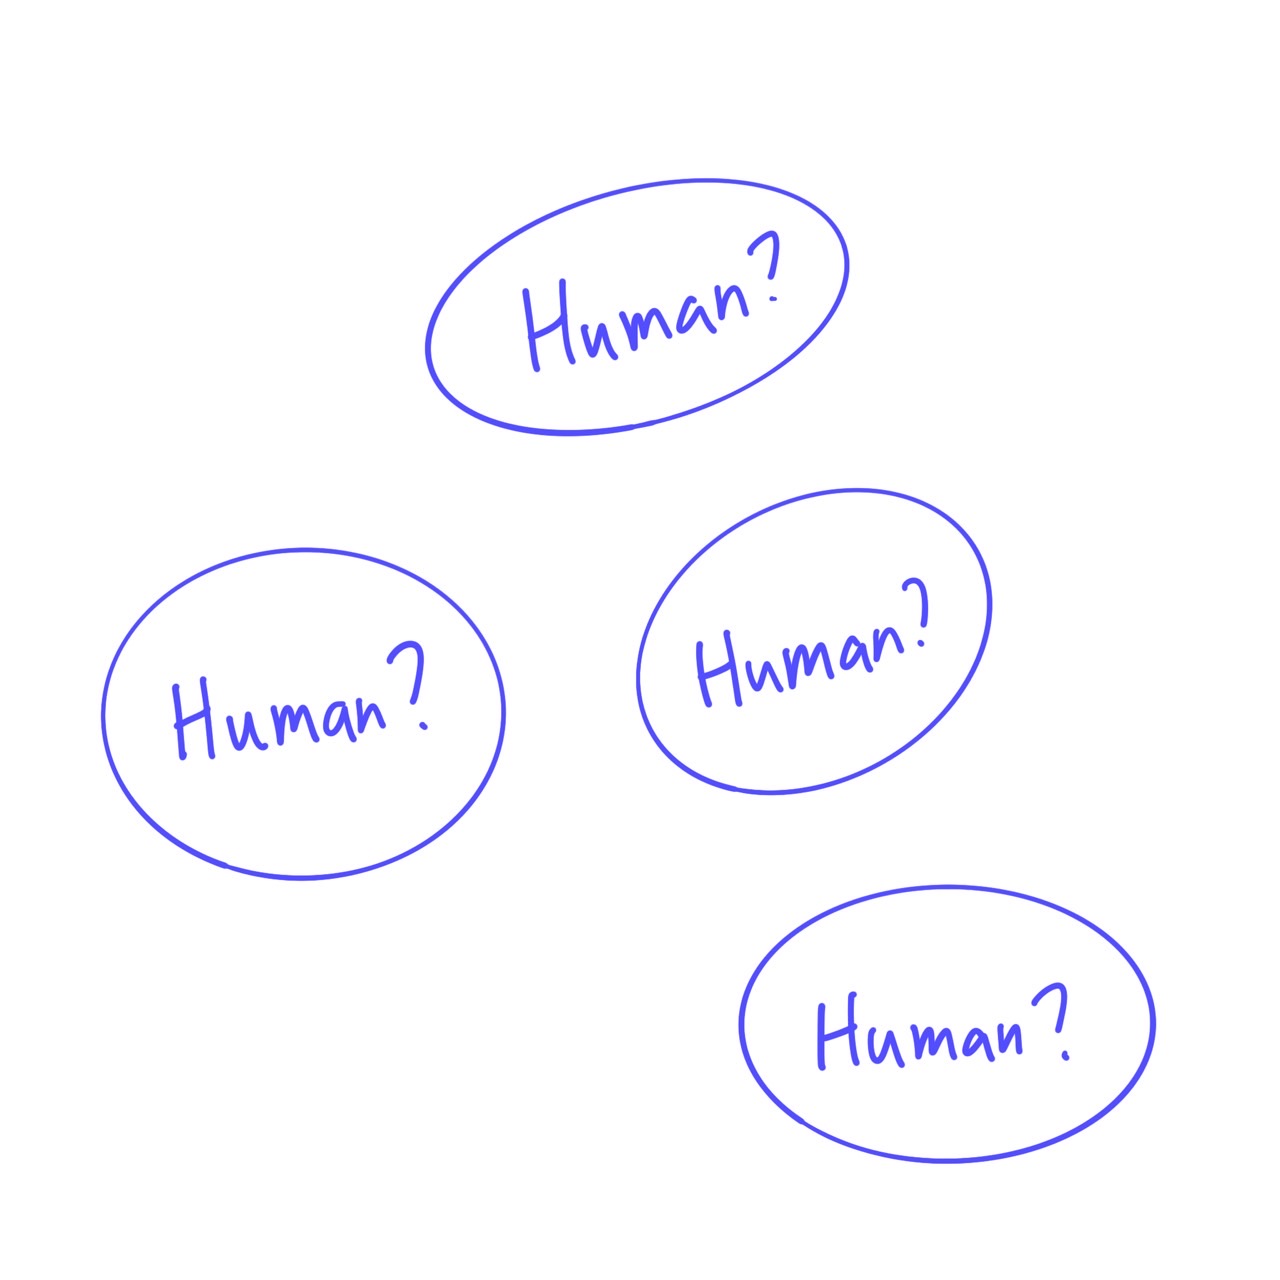 Human?
Human?
Human?
Human?